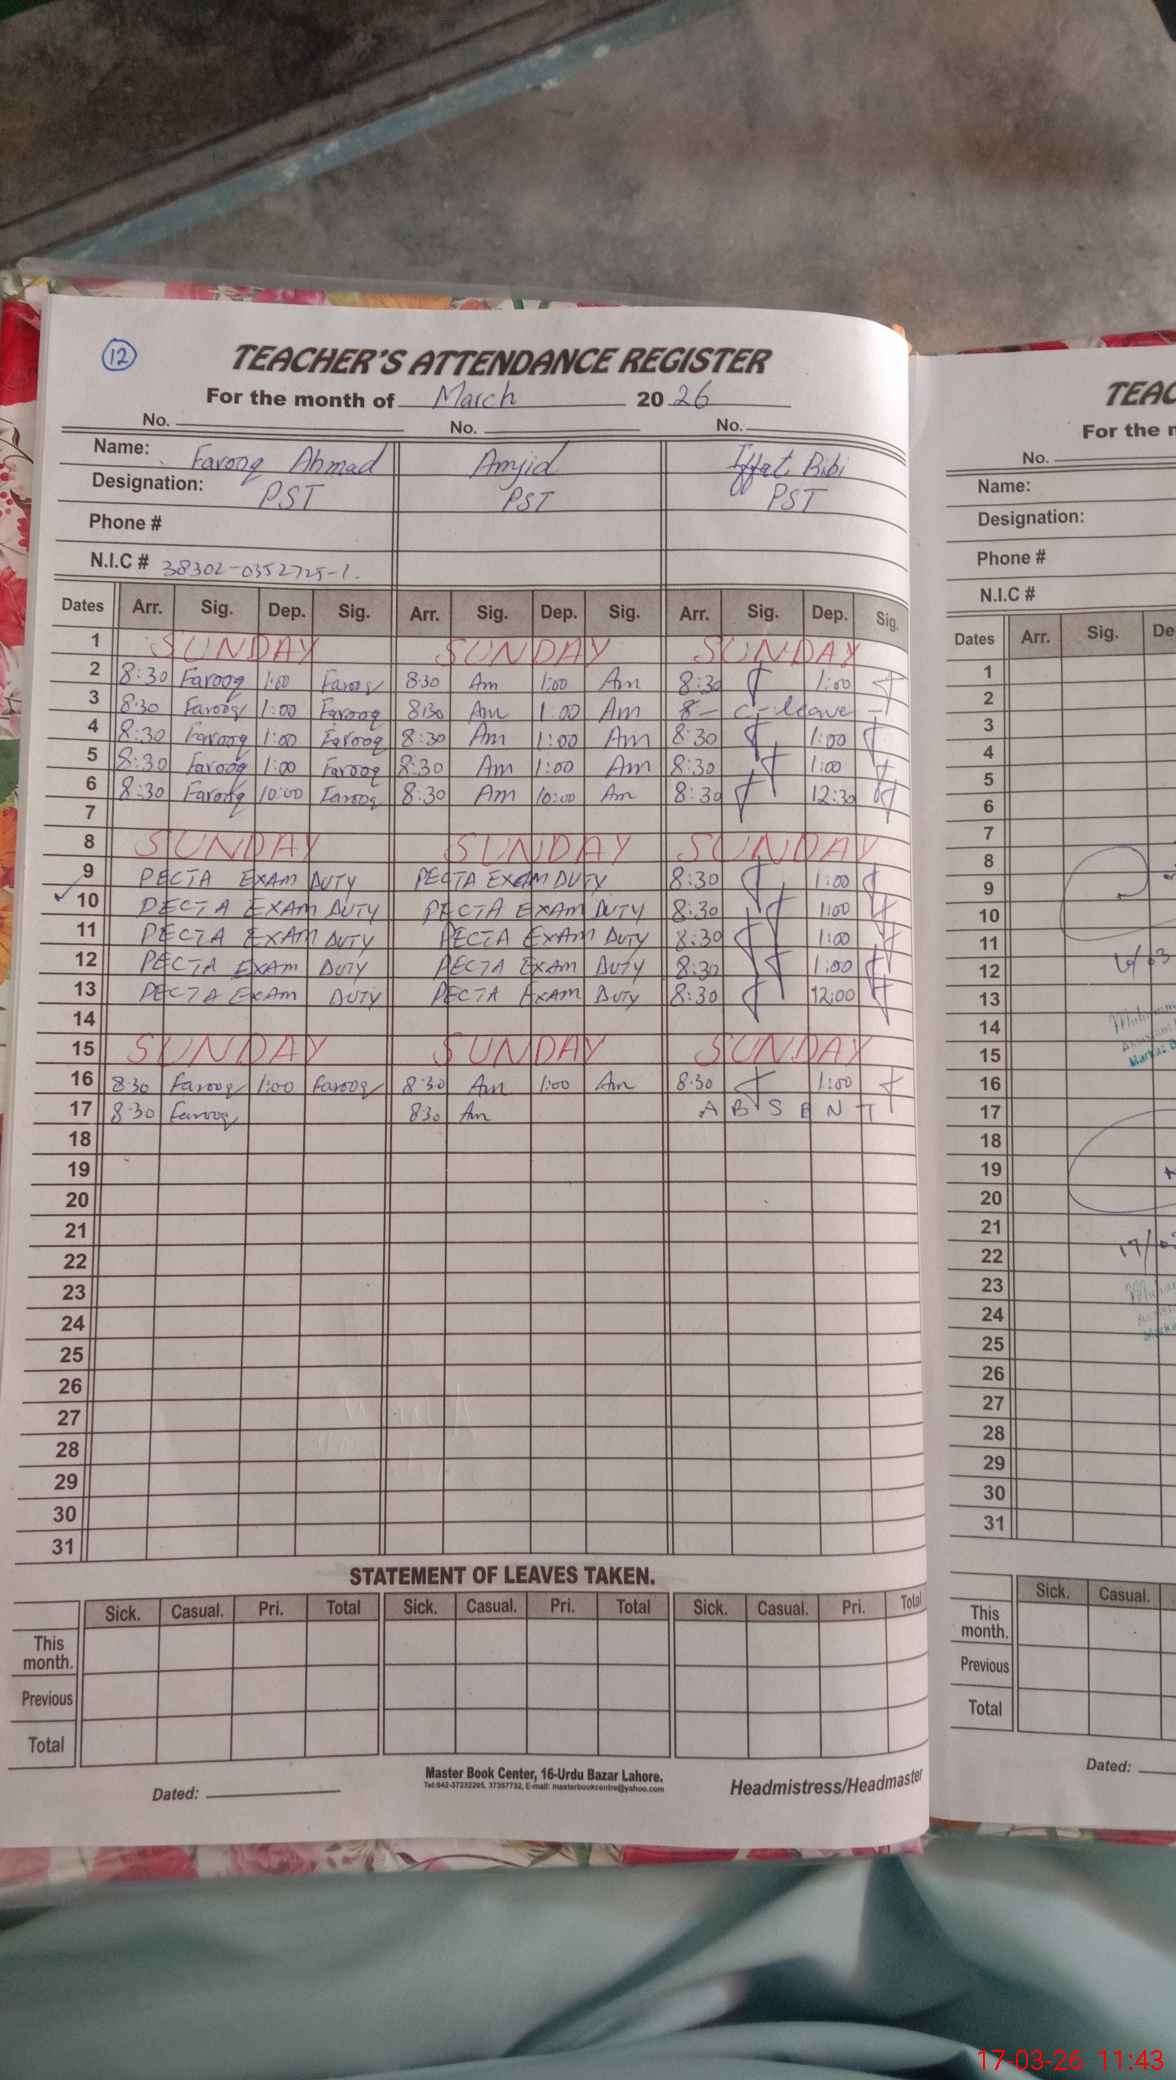 12
TEACHER'S ATTENDANCE REGISTER
For the month of March 2026
No. No. No.
Name: Farooq Ahmad Amjid Iffat Bibi
Designation: PST PST PST
Phone #
N.I.C # 38302-0352725-1.
Dates Arr. Sig. Dep. Sig. Arr. Sig. Dep. Sig. Arr. Sig. Dep. Sig.
1 SUNDAY SUNDAY SUNDAY
2 8:30 Farooq 1:00 Farooq 8:30 Am 1:00 Am 8:30 1:00
3 8:30 Farooq 1:00 Farooq 8:30 Am 1:00 Am 8 - C-leave -
4 8:30 Farooq 1:00 Farooq 8:30 Am 1:00 Am 8:30 1:00
5 8:30 Farooq 1:00 Farooq 8:30 Am 1:00 Am 8:30 1:00
6 8:30 Farooq 10:00 Farooq 8:30 Am 10:00 Am 8:30 12:30
7
8 SUNDAY SUNDAY SUNDAY
9 PECTA EXAM DUTY PECTA EXAM DUTY 8:30 1:00
10 PECTA EXAM DUTY PECTA EXAM DUTY 8:30 1:00
11 PECTA EXAM DUTY PECTA EXAM DUTY 8:30 1:00
12 PECTA EXAM DUTY PECTA EXAM DUTY 8:30 1:00
13 PECTA EXAM DUTY PECTA EXAM DUTY 8:30 12:00
14
15 SUNDAY SUNDAY SUNDAY
16 8:30 Farooq 1:00 Farooq 8:30 Am 1:00 Am 8:30 1:00
17 8:30 Farooq 8:30 Am ABSENT
18
19
20
21
22
23
24
25
26
27
28
29
30
31
STATEMENT OF LEAVES TAKEN.
Sick. Casual. Pri. Total Sick. Casual. Pri. Total Sick. Casual. Pri. Total
This month.
Previous
Total
Master Book Center, 16-Urdu Bazar Lahore.
Dated: Headmistress/Headmaster
TEAC
For the
No.
Name:
Designation:
Phone #
N.I.C #
Dates Arr. Sig. De
1
2
3
4
5
6
7
8
9
10
11
12
13
14
15
16
17
18
19
20
21
22
23
24
25
26
27
28
29
30
31
Sick. Casual.
This month.
Previous
Total
Dated:
17-03-26 11:43